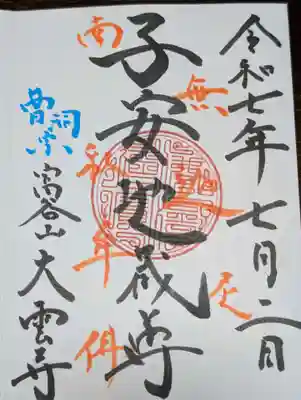 令和七年七月二日
子安地蔵尊
南無釈迦牟尼佛
曹洞宗
富谷山大雲寺